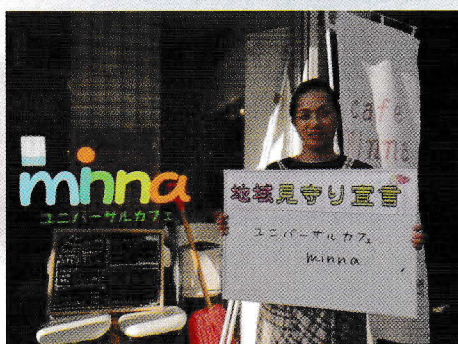 minna
ユニバーサルカフェ
cafe
minna
地域見守り宣言
ユニバーサルカフェ
minna